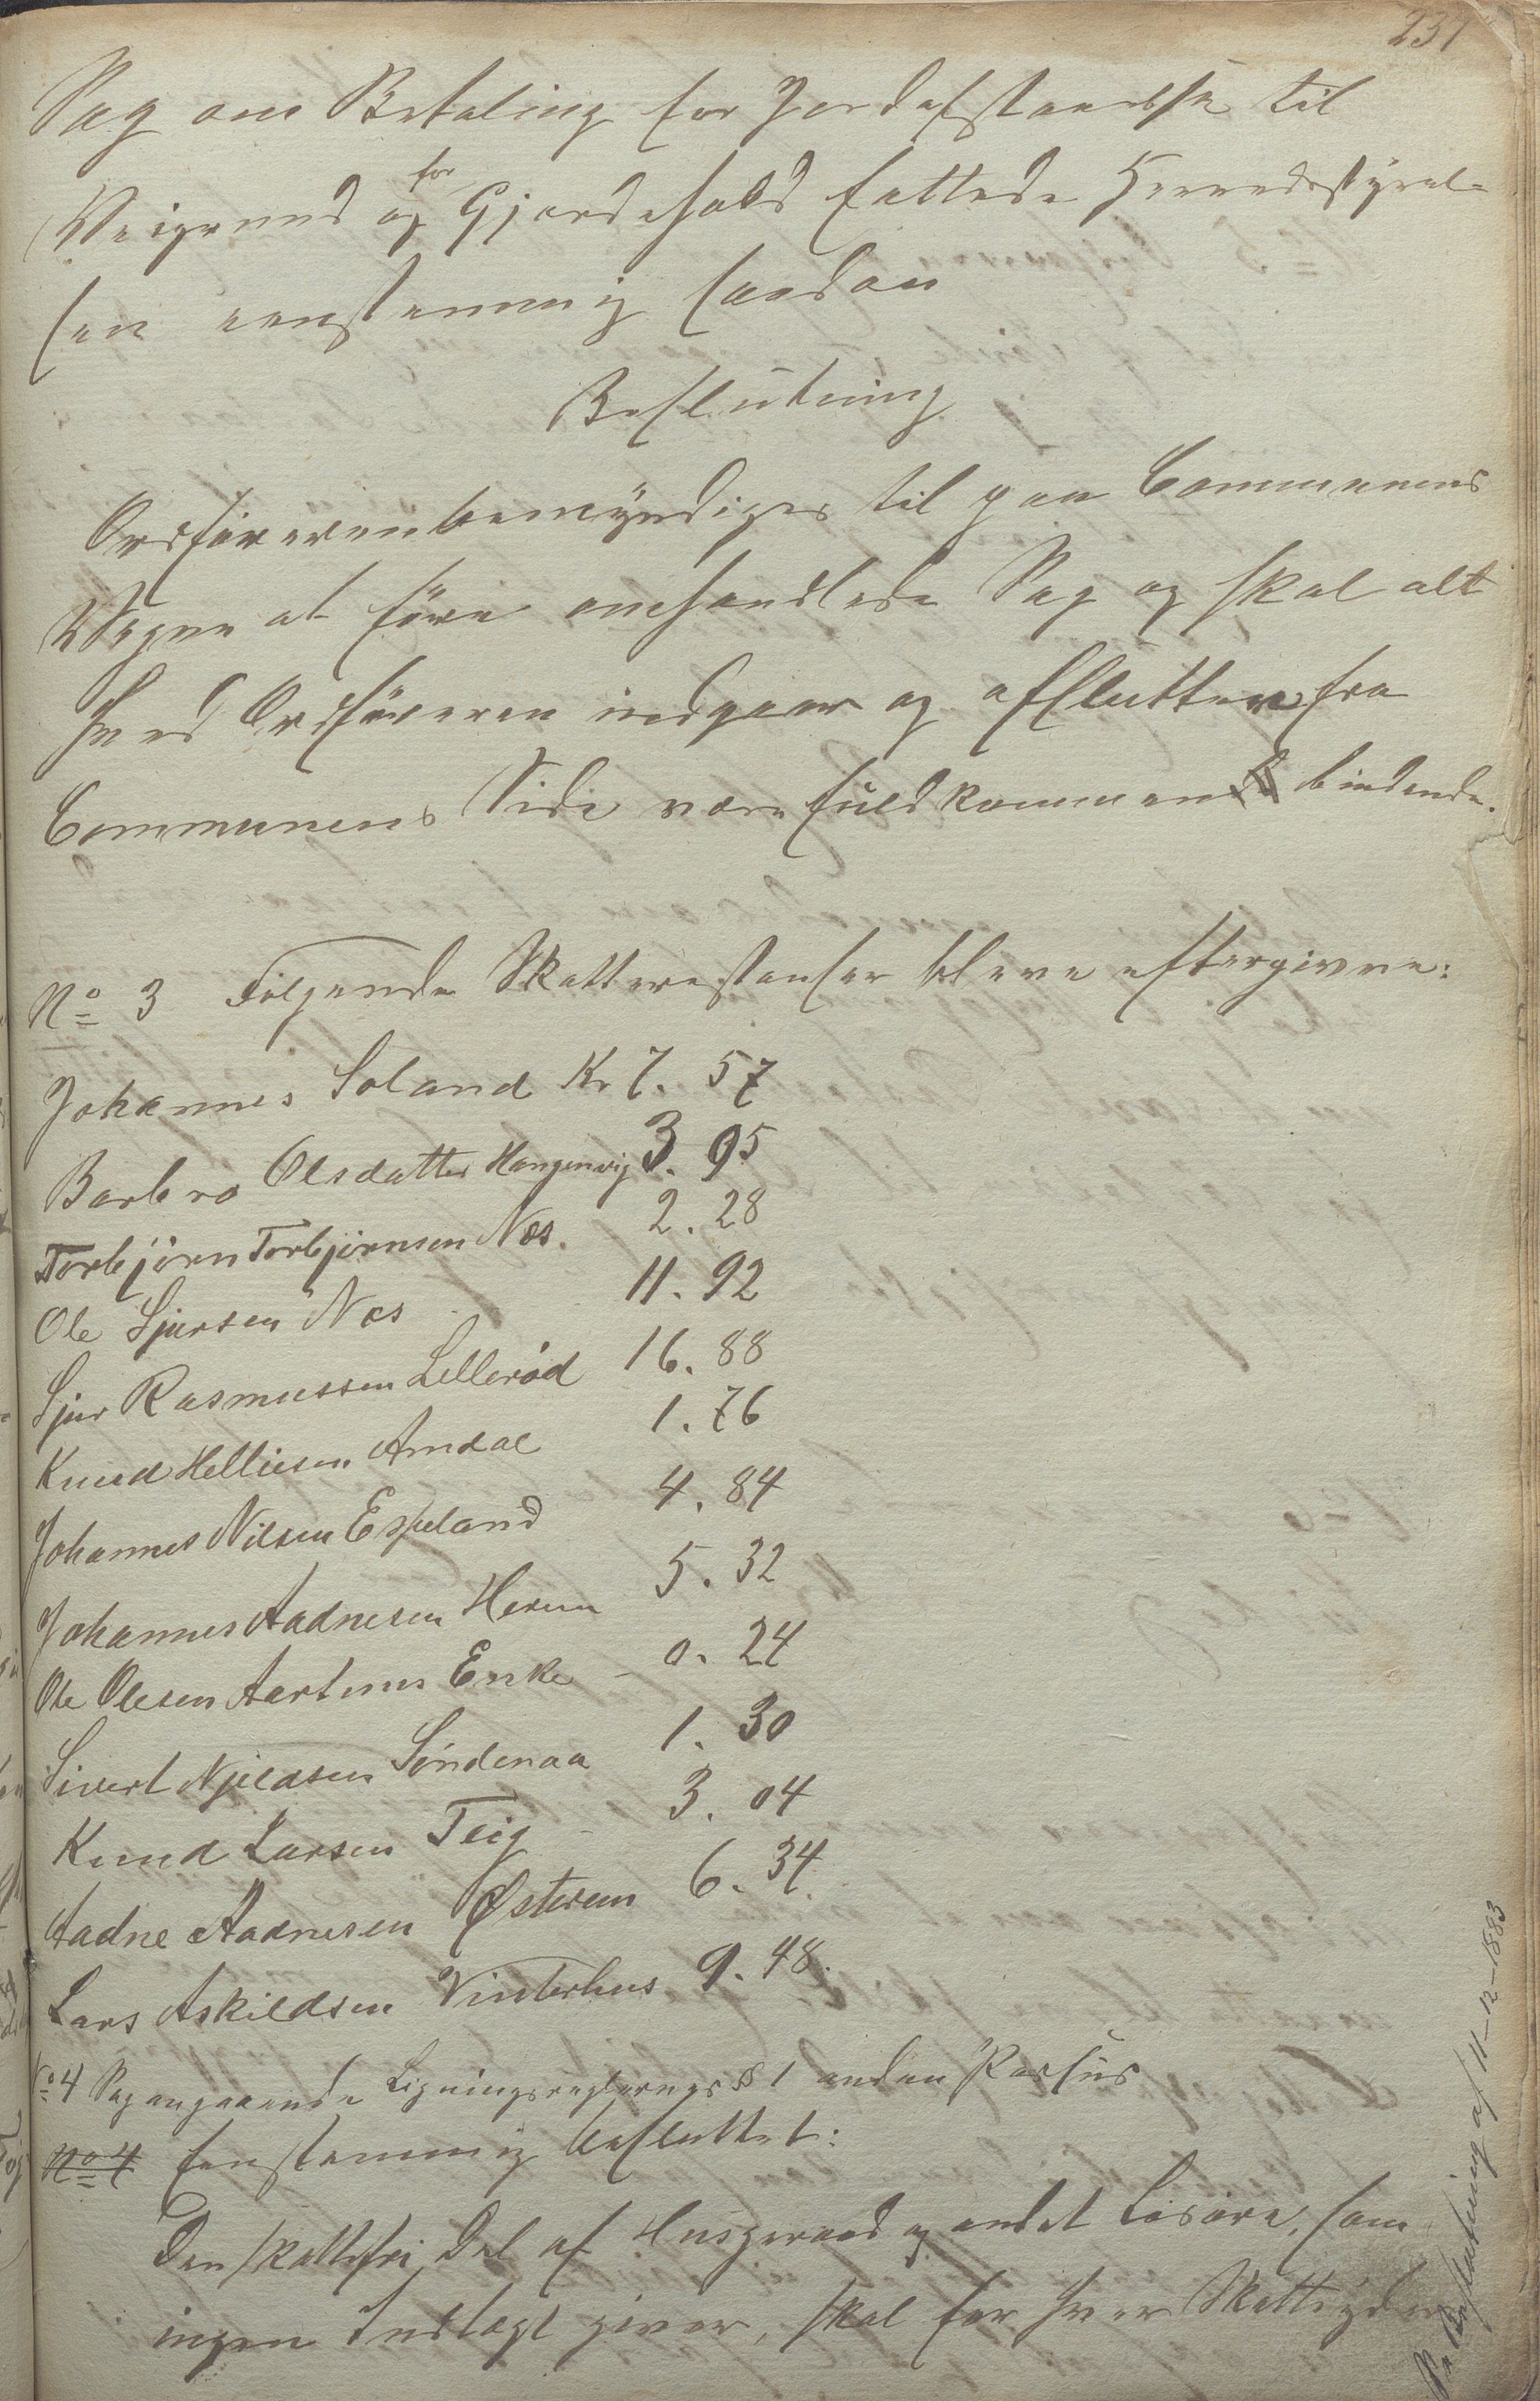 237
Sag om Betaling for Jordafstaaelse til
Veigrund og for Gjordehold fattede Herredsstyrel-
sen eenstemmig saadan
Beslutning
Ordføreren bemyndiges til paa Communens
Vegne at føre omhandlede Sag og skal alt
hvad Ordføreren indgaar og afslutter fra
Communens Side være fuldkommen bindende.
No 3 Følgende Skatterestanser bleve eftergivne:
Johannes Soland Kr 7. 57
Barbro Olsdatter Hangenvig 3. 95
Torbjörn Torbjörnsen Nes. 2. 28
Ole Sjursen Nes 11. 92
Sjur Rasmussen Lelleröd 16. 88
Knud Helliesen Amdal 1. 76
Johannes Nilsen Espeland 4. 84
Johannes Aadnesen Herum 5. 32
Ole Olesen Aartuns Enke - 0. 24
Sivert Njeldsen Söndenaa 1. 30
Knud Larsen Teig - 3. 04
Aadne Aadnesen Østrem 6. 34
Lars Askildsen Vinterhus 9. 48.
No 4 Sag angaaende Ligningsreglernes § 1 anden Passus
No 4 Eenstemmig besluttet:
Den skattefri Del af Husgeraad og andet Løsøre, som
ingen Indtægt giver, skal for hver Skatteyder
Se Beslutning af 11-12-1883